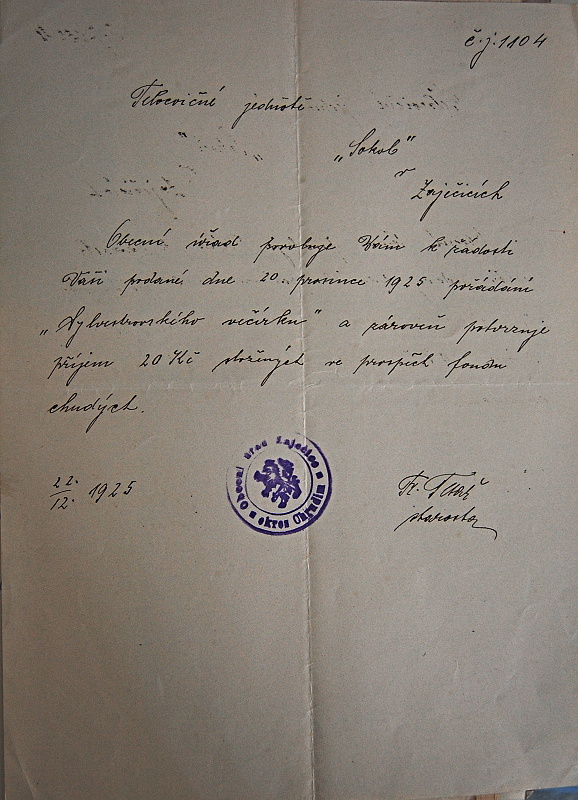 č. j. 1104
Tělocvičné jednotě
„Sokol"
v
Zaječicích
Obecní úřad povoluje Vám k žádosti
Vaší podané dne 20. prosince 1925 pořádání
„Sylvestrovského večírku" a zároveň potvrzuje
příjem 20 Kč složených ve prospěch fondu
chudých.
22./12. 1925
Obecní úřad Zaječice
okres Chrudim
Fr.
starosta